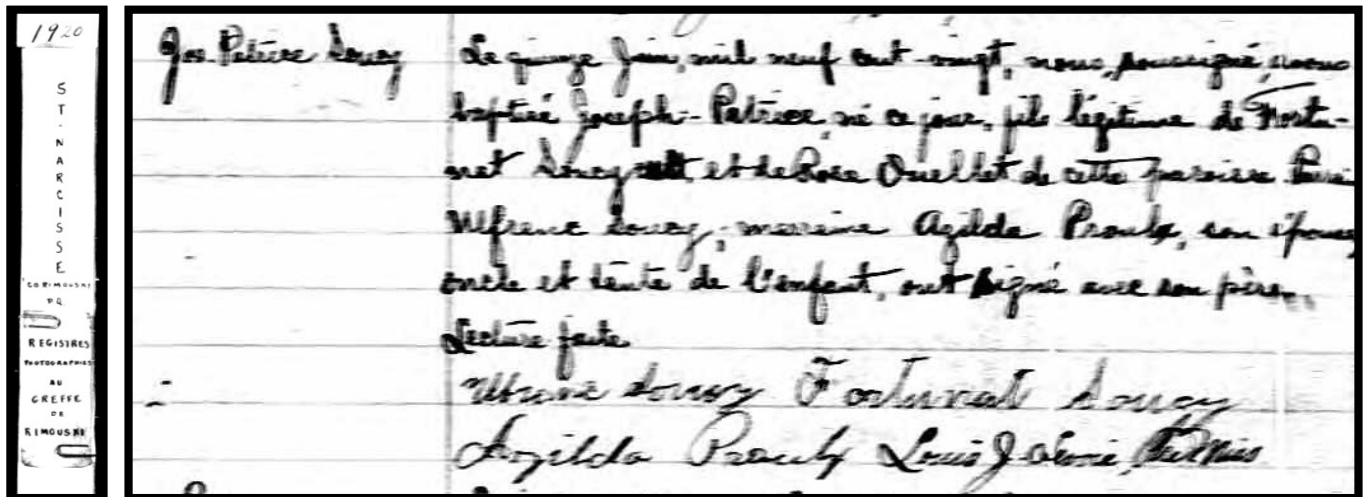 1920
ST-NARCISSE
CO RIMOUSKI
P.Q.
REGISTRES
PHOTOGRAPHIES
AU
GREFFE
DE
RIMOUSKI
Jos. Patrice Soucy
Le quinze Juin, mil neuf cent-vingt, nous, soussigné, avons
baptisé Joseph-Patrice, né ce jour, fils légitime de Fortu-
nat Soucy et de Rose Ouellet de cette paroisse
Soucy, marraine Azilda Proulx, son épouse
oncle et tante de l'enfant, ont signé avec son père.
Lecture faite
Soucy Fortunat Soucy
Azilda Proulx Louis J.